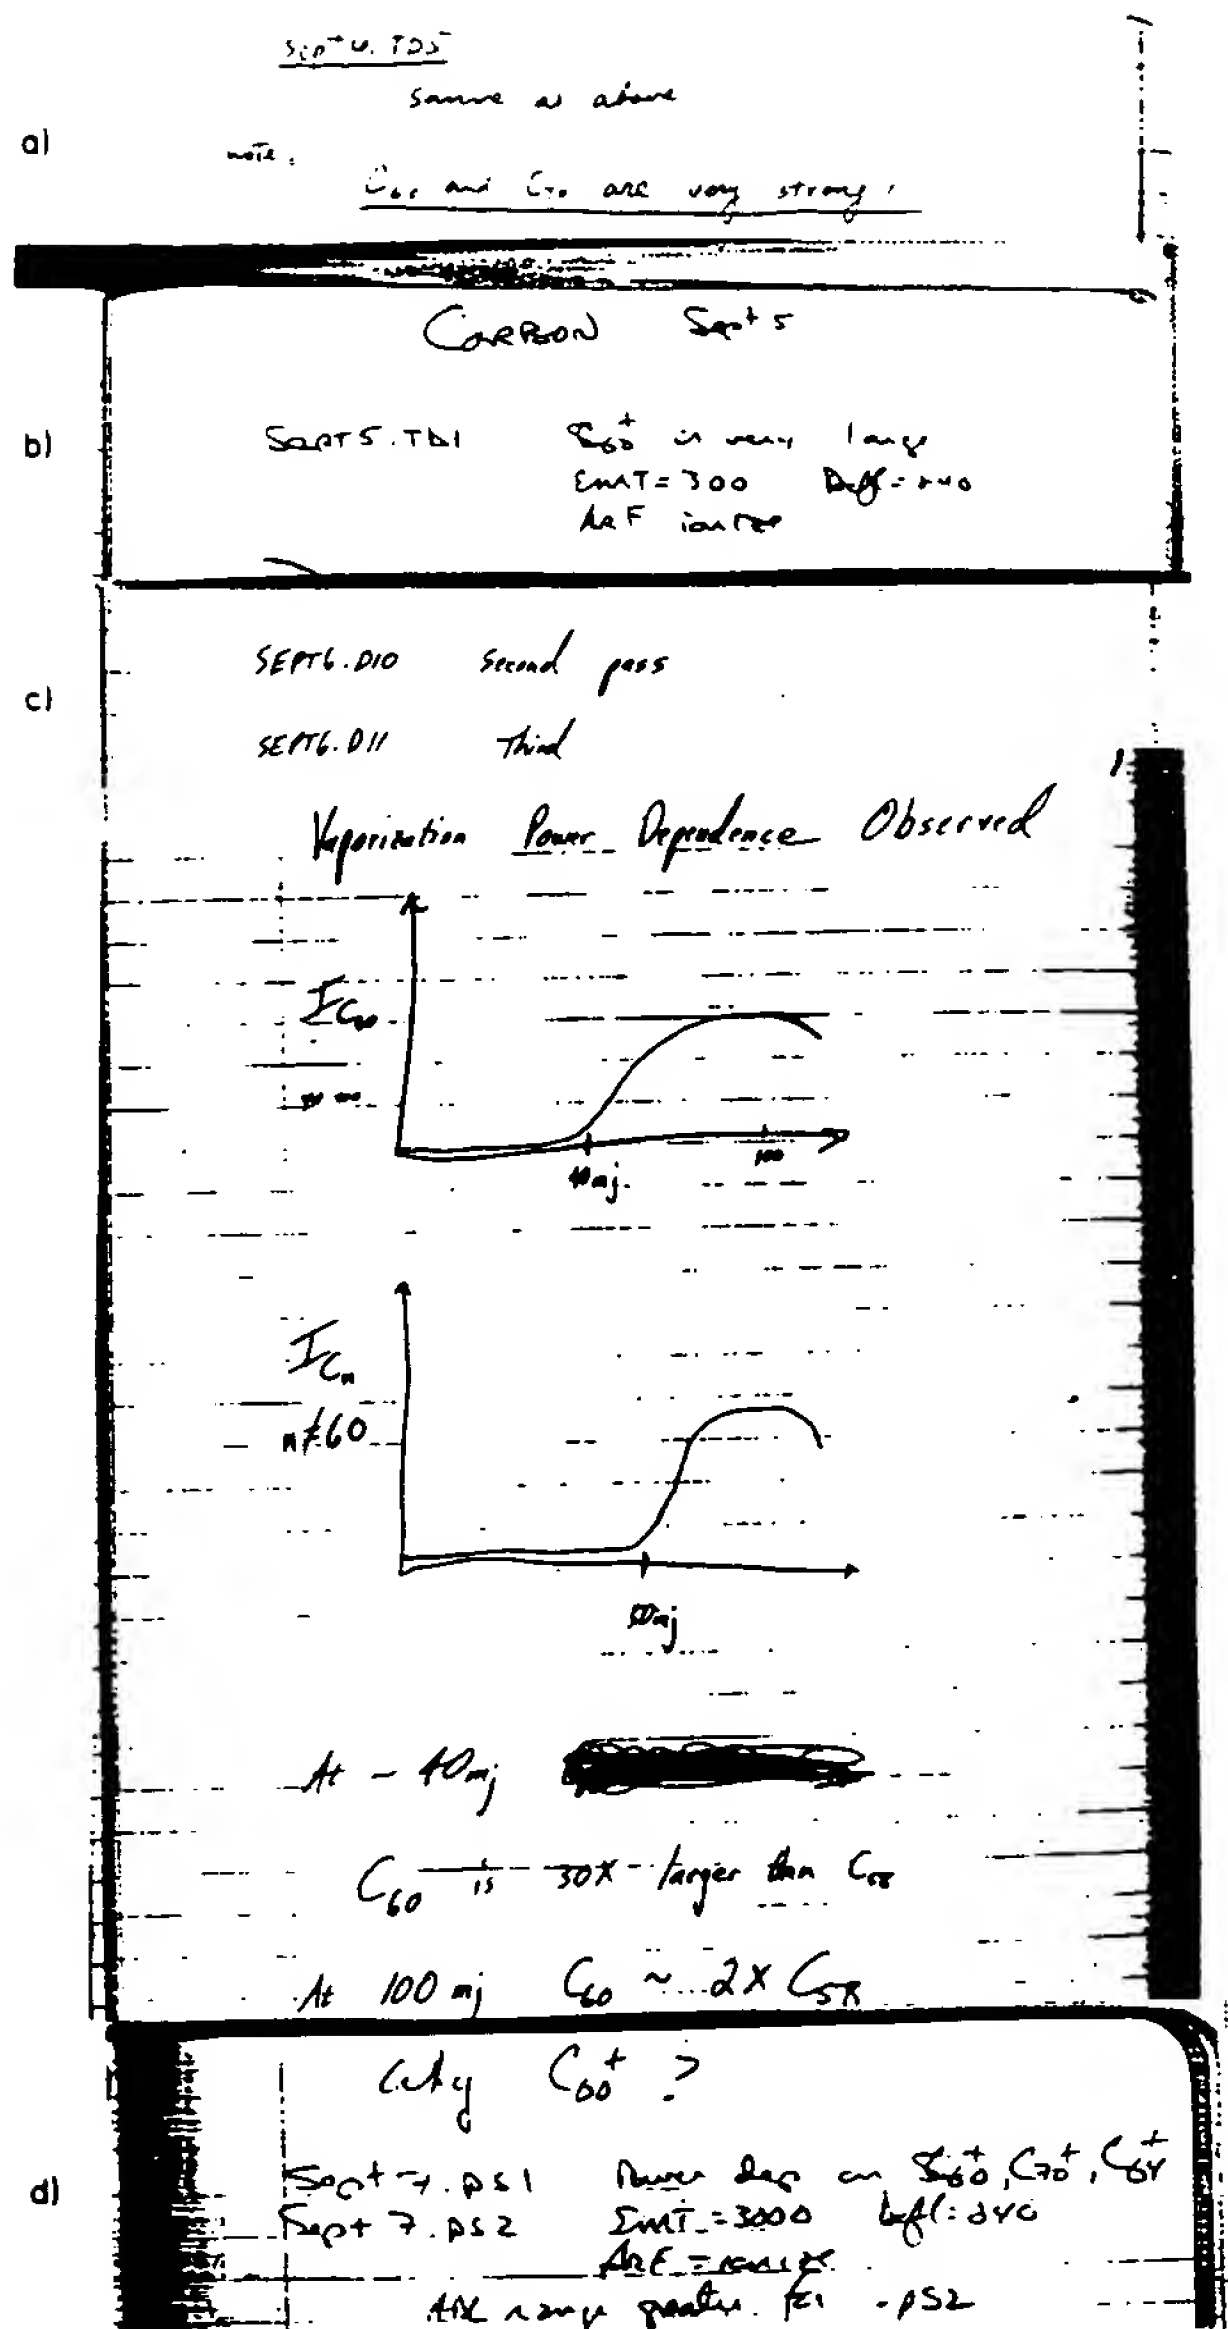 Sept 4. TD5
same as above
a)
note:
C60 and C70 are very strong!
CARBON Sept 5
b)
SEPT5.TD1 C60+ is very large
EMT=300 Defl=240
ArF ionize
c)
SEPT6.D10 Second pass
SEPT6.D11 Third
Vaporization Power Dependence Observed
I C60
40mj. 100
I Cn
n≠60
50mj
At ~ 40mj
C60 is 30X larger than C58
At 100mj C60 ~ 2X C58
Why C60+ ?
d)
Sept 7.ps1 Power dep on C60+, C70+, C64+
Sept 7.ps2 EMT=3000 Defl=240
ArF = ionize
range greater for .ps2